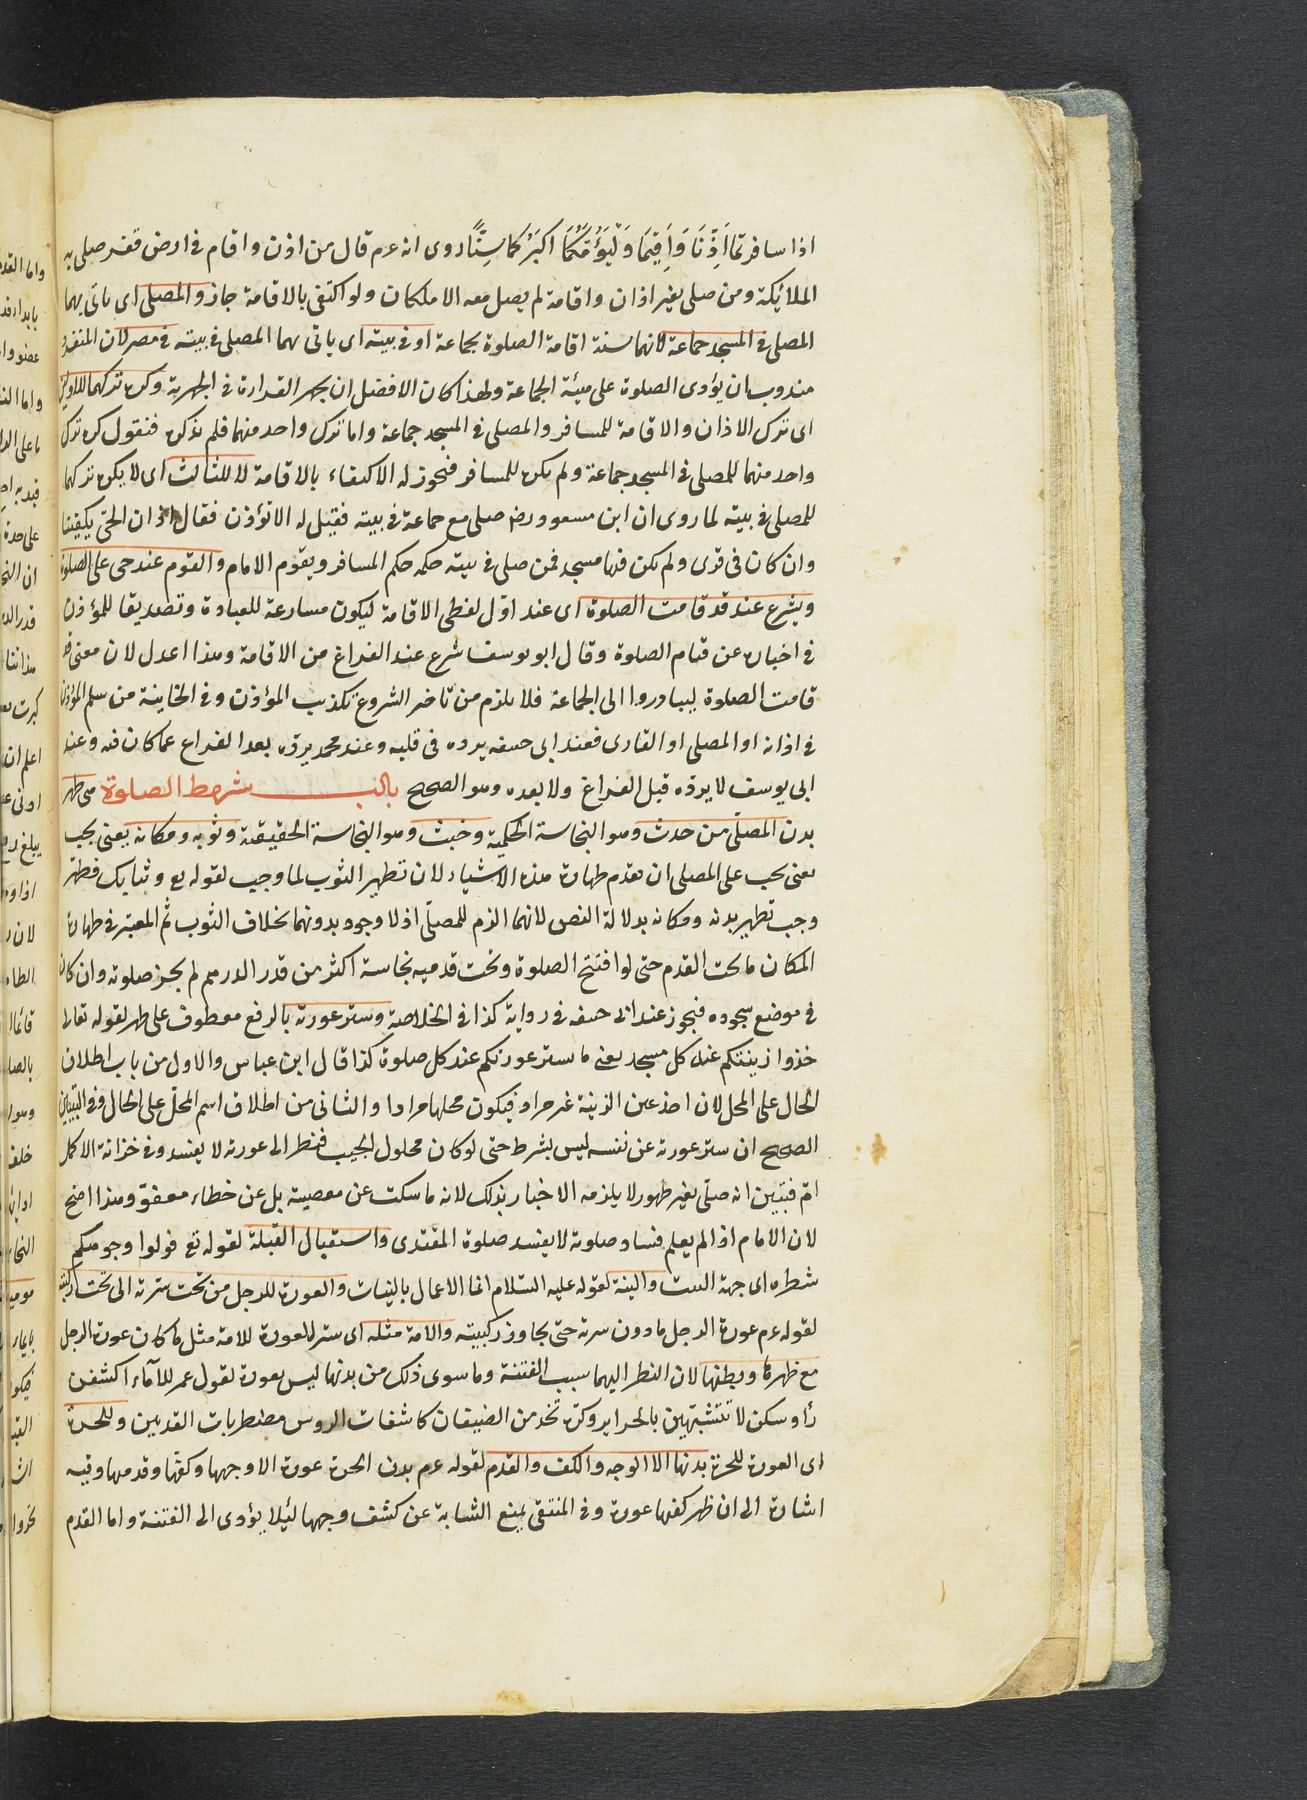 اذا سافرتما اَذِّنَا وَاَقِيمَا وَلْيَؤُمَّكُمَا اكبَرُكما سِنًّا روى انه عم قال من اذن واقام فى ارض قفر صلى به
الملائكة ومن صلى بغير اذان واقامة لم يصل معه الا ملكان ولو اكتفى بالاقامة جاز والمصلى اى ياتى بهما
المصلى فى المسجد جماعة لانهما سنة اقامة الصلوة بجماعة او فى بيته اى ياتى بهما المصلى فى بيته فى مصر لان المنفرد
مندوب ان يؤدى الصلوة على هيئة الجماعة ولهذا كان الافضل ان يجهر القراءة فى الجهرية وكره تركهما للاولين
اى ترك الاذان والاقامة للمسافر والمصلى فى المسجد جماعة واما ترك واحد منهما فلم يذكره فنقول كره ترك
واحد منهما للمصلى فى المسجد جماعة ولم يكره للمسافر فيجوز له الاكتفاء بالاقامة لا للثالث اى لا يكره تركهما
للمصلى فى بيته لما روى ان ابن مسعود رضـ صلى مع جماعة فى بيته فقيل له الا تؤذن فقال اذان الحى يكفينا
وان كان فى قرى ولم يكن فيها مسجد فمن صلى فى بيته حكمه حكم المسافر ويقوم الامام والقوم عند حى على الصلوة
ويشرع عند قد قامت الصلوة اى عند اوّل لفظى الاقامة ليكون مسارعة للعبادة وتصديقا للمؤذن
فى اخباره عن قيام الصلوة وقال ابو يوسف شرع عند الفراغ من الاقامة وهذا اعدل لان معنى قد
قامت الصلوة ليبادروا الى الجماعة فلا يلزم من تاخر الشروع تكذيب المؤذن وفى الخانية من سلم المؤذن
فى اذانه او المصلى او القارى فعند ابى حنيفه يرده فى قلبه وعند محمد يردّه بعد الفراغ عما كان فيه وعند
ابى يوسف لا يردّه قبل الفراغ ولا بعده وهو الصحيح باب شروط الصلوة هى طهر
بدن المصلّى من حدث وهو النجاسة الحكمية وخبث وهو النجاسة الحقيقية وثوبه ومكانه يعنى يجب
يعنى يجب على المصلى ان يقدم طهارة هذه الاشياء لان تطهير الثوب لما وجب لقوله تع وثيابك فطهر
وجب تطهير بدنه ومكانه بدلالة النص لانهما الزم للمصلّى اذ لا وجود بدونهما بخلاف الثوب ثم المعتبر فى طهارة
المكان ما تحت القدم حتى لو افتتح الصلوة وتحت قدميه نجاسة اكثر من قدر الدرهم لم يجز صلوته وان كان
فى موضع سجوده فيجوز عند ابى حنيفه فى رواية كذا فى الخلاصة وستر عورته بالرفع معطوف على طهر لقوله تعالى
خذوا زينتكم عند كل مسجد يعنى ما يستر عورتكم عند كل صلوة كذا قال ابن عباس والاول من باب اطلاق
الحال على المحل لان اخذ عين الزينة غير مراد فيكون محلها مرادا والثانى من اطلاق اسم المحلّ على الحال وفى التبيين
الصحيح ان ستر عورته عن نفسه ليس بشرط حتى لو كان محلول الجيب فنظر الى عورته لا يفسد وفى خزانة الاكمل
امّ فتبين انه صلّى بغير طهور لا يلزمه الاخبار بذلك لانه ما سكت عن معصية بل عن خطاء معفوّ وهذا اصح
لان الامام اذا لم يعلم فساد صلوته لا يفسد صلوة المقتدى واستقبال القبلة لقوله تع فولوا وجوهكم
شطره اى جهة البيت والنية لقوله عليه السّلام انما الاعمال بالنيات والعورة للرجل من تحت سرته الى تحت ركبته
لقوله عم عورة الرجل ما دون سرته حتى يجاوز ركبتيه والامة مثله اى ستر العورة للامة مثل ما كان عورة الرجل
مع ظهرها وبطنها لان النظر اليهما سبب الفتنة وما سوى ذلك من بدنها ليس بعورة لقول عمر للآماء اكشفن
رؤسكن لا تتشبّهن بالحرايروكنّ يخدمن الضيفان كاشفات الروس مضطربات القدمين وللحرة
اى العورة للحرة بدنها الا الوجه والكف والقدم لقوله عم بدن الحرة عورة الا وجهها وكفها وقدمها وفيه
اشارة الى ان ظهر كفها عورة وفى المنتقى يمنع الشابة عن كشف وجهها لئلا يؤدى الى الفتنة واما القدم